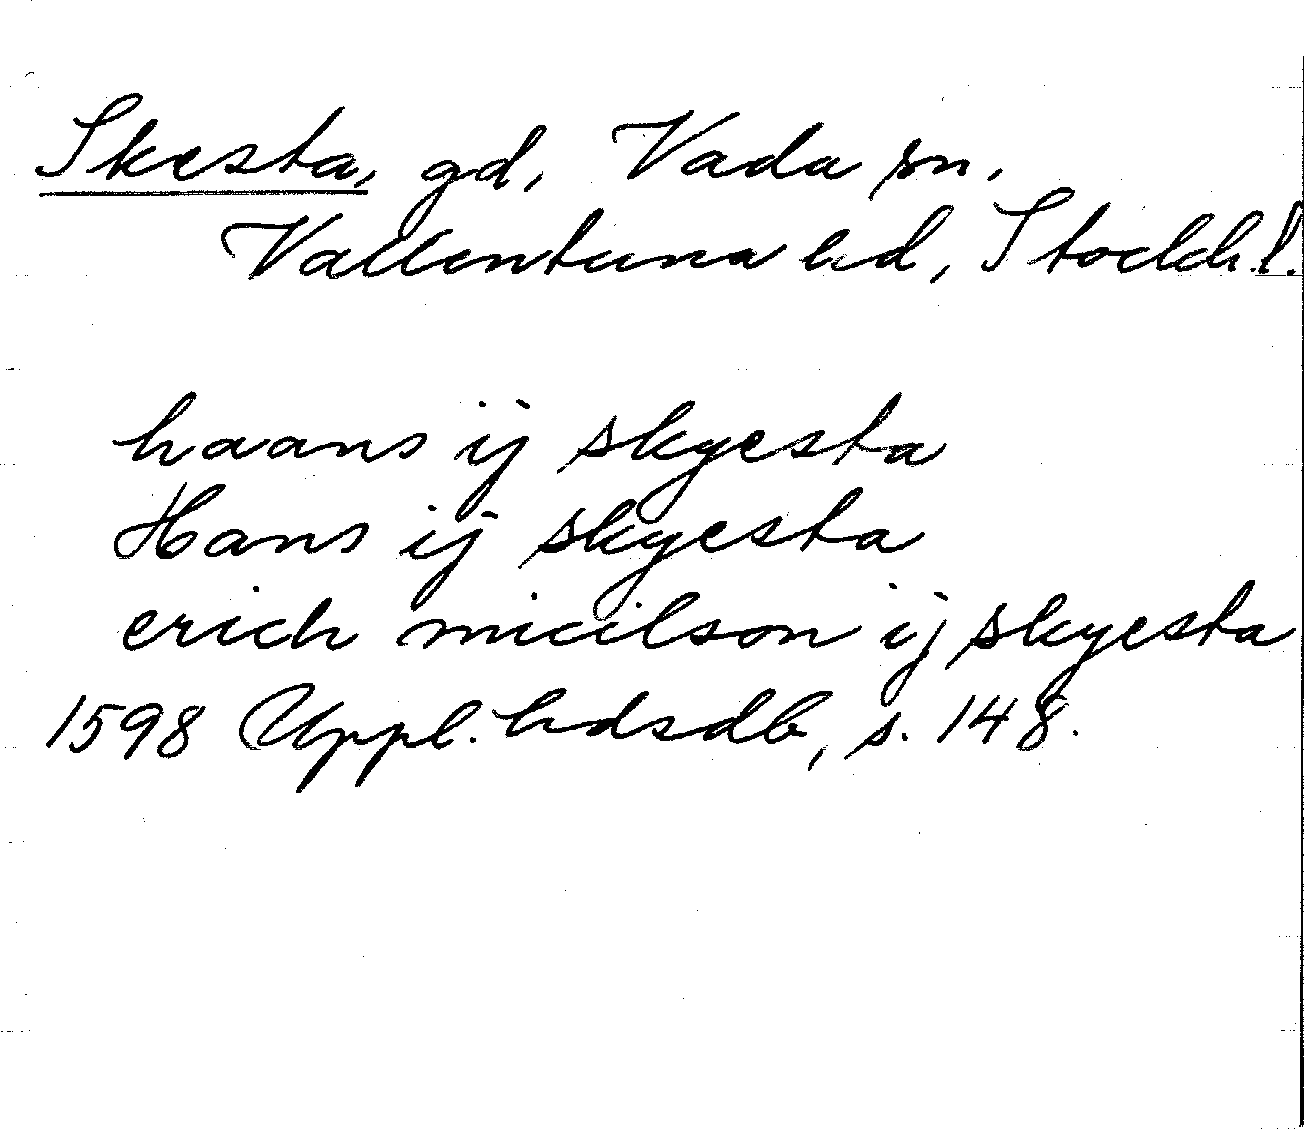 Skesta, gd, Vada sn.
Vallentuna hd, Stockh. l.
haans ij skyesta
Hans ij skyesta
erich micilson ij skyesta
1598 Uppl. hdsdb, s. 148.